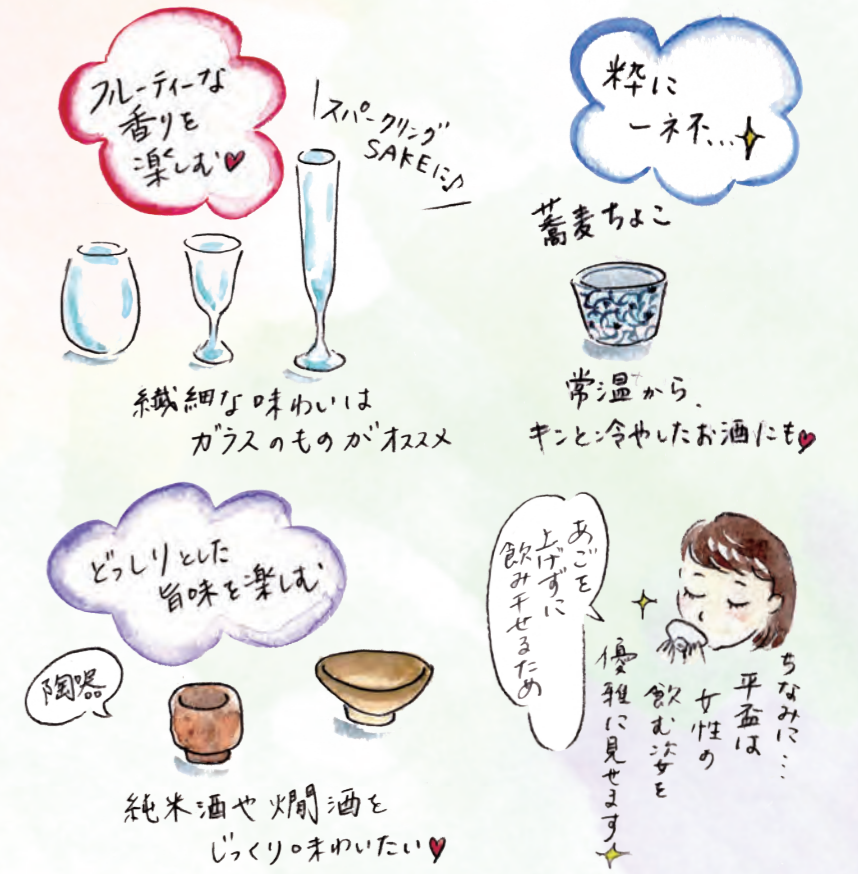 フルーティーな
香りを
楽しむ♥
スパークリング
SAKEに♪
繊細な味わいは
ガラスのものがオススメ
粋に
一杯...
蕎麦ちょこ
常温から、
キンと冷やしたお酒にも♥
どっしりとした
旨味を楽しむ
陶器
純米酒や燗酒を
じっくり味わいたい♥
あごを
上げずに
飲み干せるため
ちなみに...
平盃は
女性の
飲む姿を
優雅に見せます